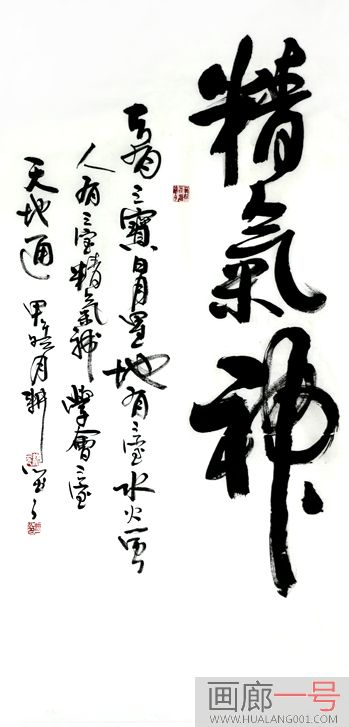 精氣神
天有三寶日月星地有三寶水火風
人有三寶精氣神學會三寶
天地通
画廊一号
WWW.HUALANG001.COM